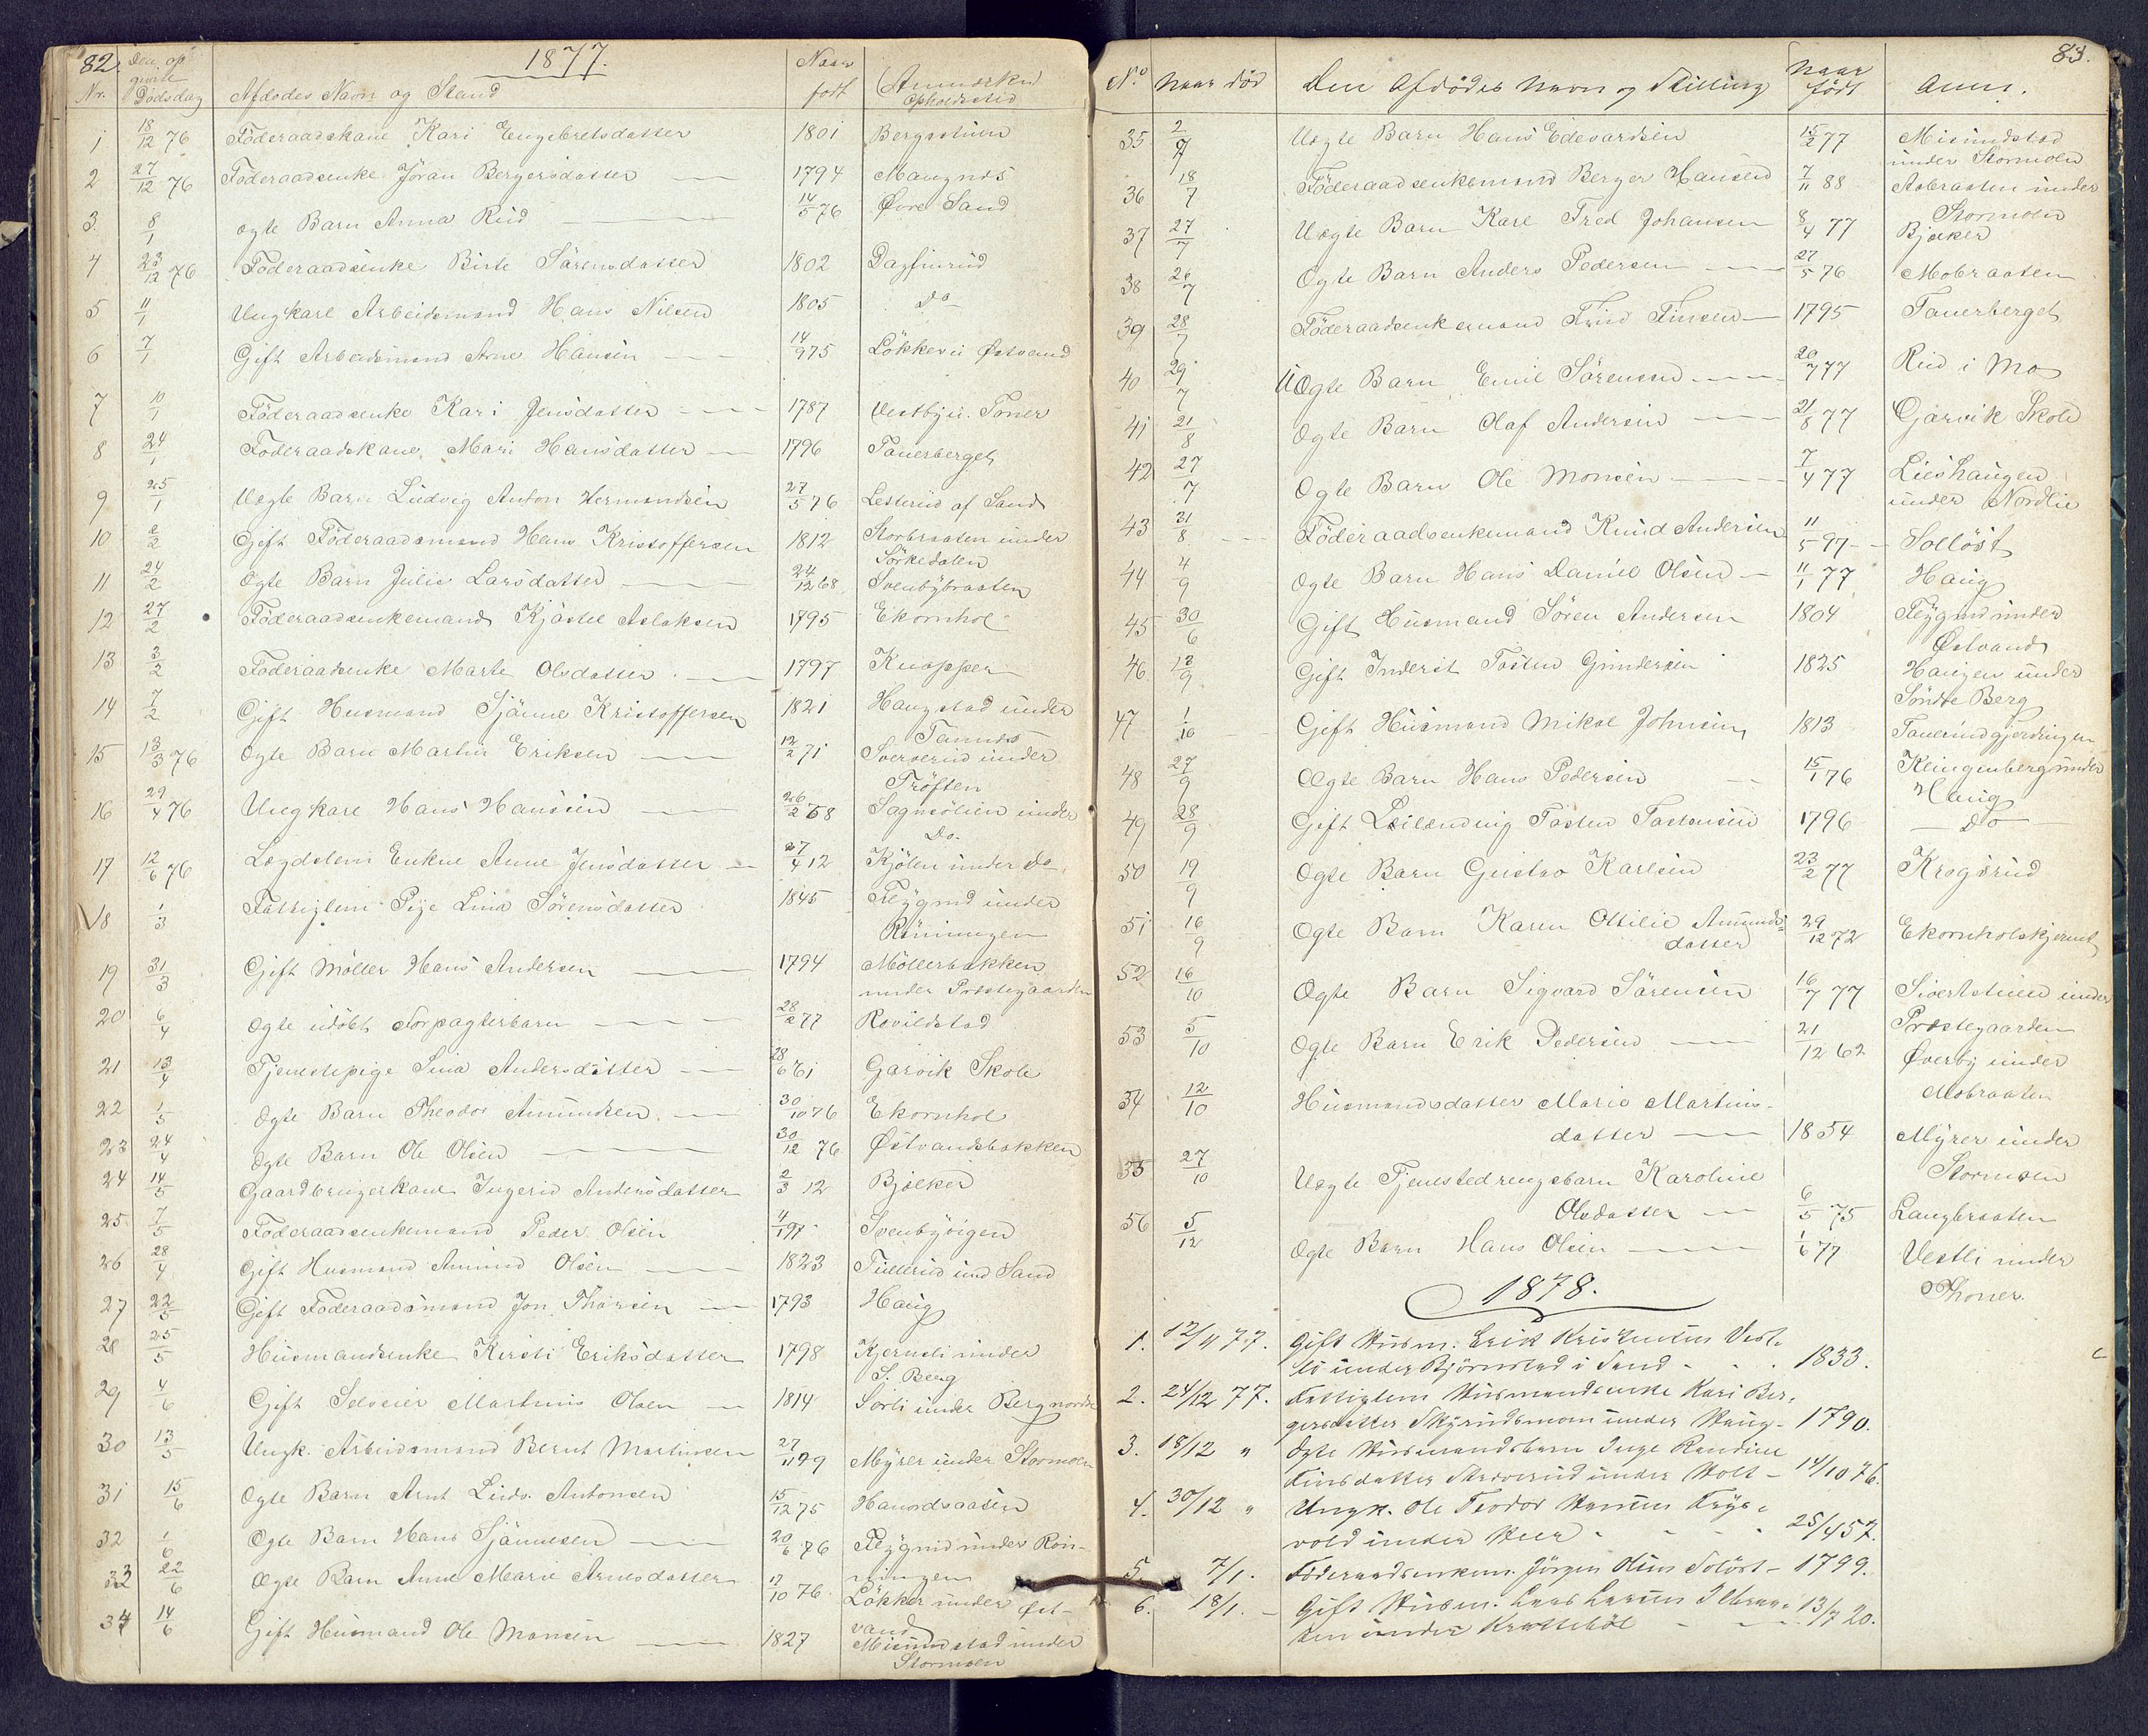 82. 1877.
Nr. Den opgivne Dødsdag Afdødes Navn og Stand Naar født Anmærkn Opholdssted
1 18/12 76 Föderaadskane Kari Engebretsdatter 1801 Bergsstuen
2 27/12 76 Föderaadsenke Jöran Bergersdatter 1794 Maugnæs
3. 8/1 Ægte Barn Anna Rud 14/5 76 Øvre Sand
4 23/12 76 Föderaadsenke Birte Sörensdatter 1802 Dagfinrud
5 11/1 Ungkarl Arbeidsmand Hans Nilsen 1805 Do
6 7/1 Gift Arbeidsmand Arne Hansen 14/9 75 Lökker u Østvand
7 10/1 Föderaadsenke Kari Jensdatter 1787 Vestby u. Toner
8 24/1 Föderaadskane Mari Hansdatter 1796 Tauerberget
9 25/1 Uægte Barn Ludvig Anton Hermandsen 27/5 76 Lesterud af Sand
10 2/2 Gift Föderaadsmand Hans Kristoffersen 1812 Storbraaten under
Sörkedalen
11 24/2 Ægte Barn Julie Larsdatter 24/12 68 Svenbybraaten
12 27/2 Föderaadsenkemand Kjöstel Aslaksen 1795 Ekornhol
13 3/2 Föderaadsenke Marte Olsdatter 1797 Knapper
14 7/2 Gift Husmand Sjänne Kristoffersen 1821 Haugstad under
Tannæs
15 13/3 76 Ægte Barn Martin Eriksen 12/2 71 Sverserud under
Tröften
16 29/4 76 Ungkarl Hans Hansen 26/2 58 Sagmolien under
Do.
17 12/6 76 Lægdslem Enkne Anne Jensdatter 27/4 12 Kjölen under do
18 1/3 Fattiglem Pige Lina Sörensdatter 1845 Flygind under
Röningen
19 31/3 Gift Möller Hans Andersen 1794 Möllerbakken
under Præstegaarden
20 6/4 Ægte udöbt Forpagterbarn 28/2 77 Rovildstad
21 13/4 Tjenestepige Lina Andersdatter 28/6 61 Garvik Skole
22 1/5 Ægte Barn Theodor Amundsen 30/10 76 Ekornhol
23 24/4 Ægte Barn Ole Olsen 30/12 76 Østvandsbakken
24 14/5 Gaardbrugerkane Ingerid Andersdatter 2/3 12 Bjölker
25 7/5 Föderaadsenkemand Peder Olsen 4/1 97 Svenbyeigen
26 28/4 Gift Husmand Amund Olsen 1823 Tullerud und Sand
27 22/5 Gift Föderaadsmand Jon Thorsen 1793 Haug
28 25/5 Husmandsenke Kirsti Eriksdatter 1798 Kjernsli under
S. Berg
29 4/6 Gift Selveier Martinus Olsen 1814 Sörli under Berg nordre
30 13/5 Ungk. Arbeidsmand Bernt Martinsen 27/11 99 Myrer under Stormoen
31 15/6 Ægte Barn Arnt Ludv. Antonsen 15/12 75 Hanordsaasen
32 1/6 Ægte Barn Hans Sjännesen 20/6 76 Flygind under Rön-
ningen
33 22/6 Ægte Barn Anne Marie Arnesdatter 17/10 76 Lökker under Øst-
vand
34 14/6 Gift Husmand Ole Monsen 1827 Misundstad under
Stormoen
83.
No Naar död Den Afdödes Navn og Stilling Naar födt Anm.
35 2/7 Uægte Barn Hans Edevardsen 15/2 77 Misundstad
under Stormoen
36 18/7 Föderaadsenkemand Berger Hansen 7/11 88 Asbraaten under
Stormoen
37 27/7 Uægte Barn Karl Fred Johansen 8/4 77 Bjölker
38 26/7 Ægte Barn Anders Pedersen 27/5 76 Mobraaten
39 28/7 Föderaadsenkemand Finn Finsen 1795 Tauerberget
40 29/7 UÆgte Barn Emil Sörensen 20/7 77 Rud i Mo
41 21/8 Ægte Barn Olaf Andersen 21/8 77 Garvik Skole
42 27/7 Ægte Barn Ole Monsen 7/4 77 Lieshaugen
under Nordlie
43 31/8 Föderaadsenkemand Knud Andersen 11/5 97 Solløst
44 4/9 Ægte Barn Hans Daniel Olsen 11/1 77 Haug
45 30/6 Gift Husmand Sören Andersen 1804 Flygind under
Østvand
46 12/9 Gift Inderst Tosten Gundersen 1825 Haugen under
Söndre Berg
47 1/10 Gift Husmand Mikal Johnsen 1813 Tauerudgjerdingen
48 27/9 Ægte Barn Hans Pedersen 15/1 76 Klingenberg under
Haug
49 28/9 Gift Leilænding Tosten Tostensen 1796 Do
50 19/9 Ægte Barn Gustav Karlsen 23/2 77 Krogsrud
51 16/9 Ægte Barn Karen Ottilie Amunds-
datter 29/12 72 Ekornholskjernet
52 16/10 Ægte Barn Sigvard Sörensen 16/7 77 Sivertstuen under
Præstegaarden
53 5/10 Ægte Barn Erik Pedersen 21/12 62 Øverby under
Mobraaten
54 12/10 Husmandsdatter Marie Martins-
datter 1854 Myrer under
Stormoen
55 27/10 Uægte Tjenestedrengsbarn Karoline
Olsdatter 6/5 75 Langbraaten
56 5/12 Ægte Barn Hans Olsen 1/6 77 Vestli under
Thoner.
1878.
1. 12/11 77. Gift Husm. Erik Kristensen Vest-
li under Björnstad i Sand 1833.
2. 24/12 77. Fattiglem Husmandsenke Kari Ber-
gersdatter Skyrudsmoen under Haug 1790.
3. 18/12 " Ægte Husmandsbarn Inge Randine
Finsdatter under Holt 14/10 76.
4. 30/12 " Ungk. Ole Teodor Hansen
vold under Heer 25/4 57.
5. 7/1. Föderaadsenkem. Jörgen Olsen Solöst 1799.
6. 18/1. Gift Husm. Lars Larsen
ten under Krattebøl 13/7 20.